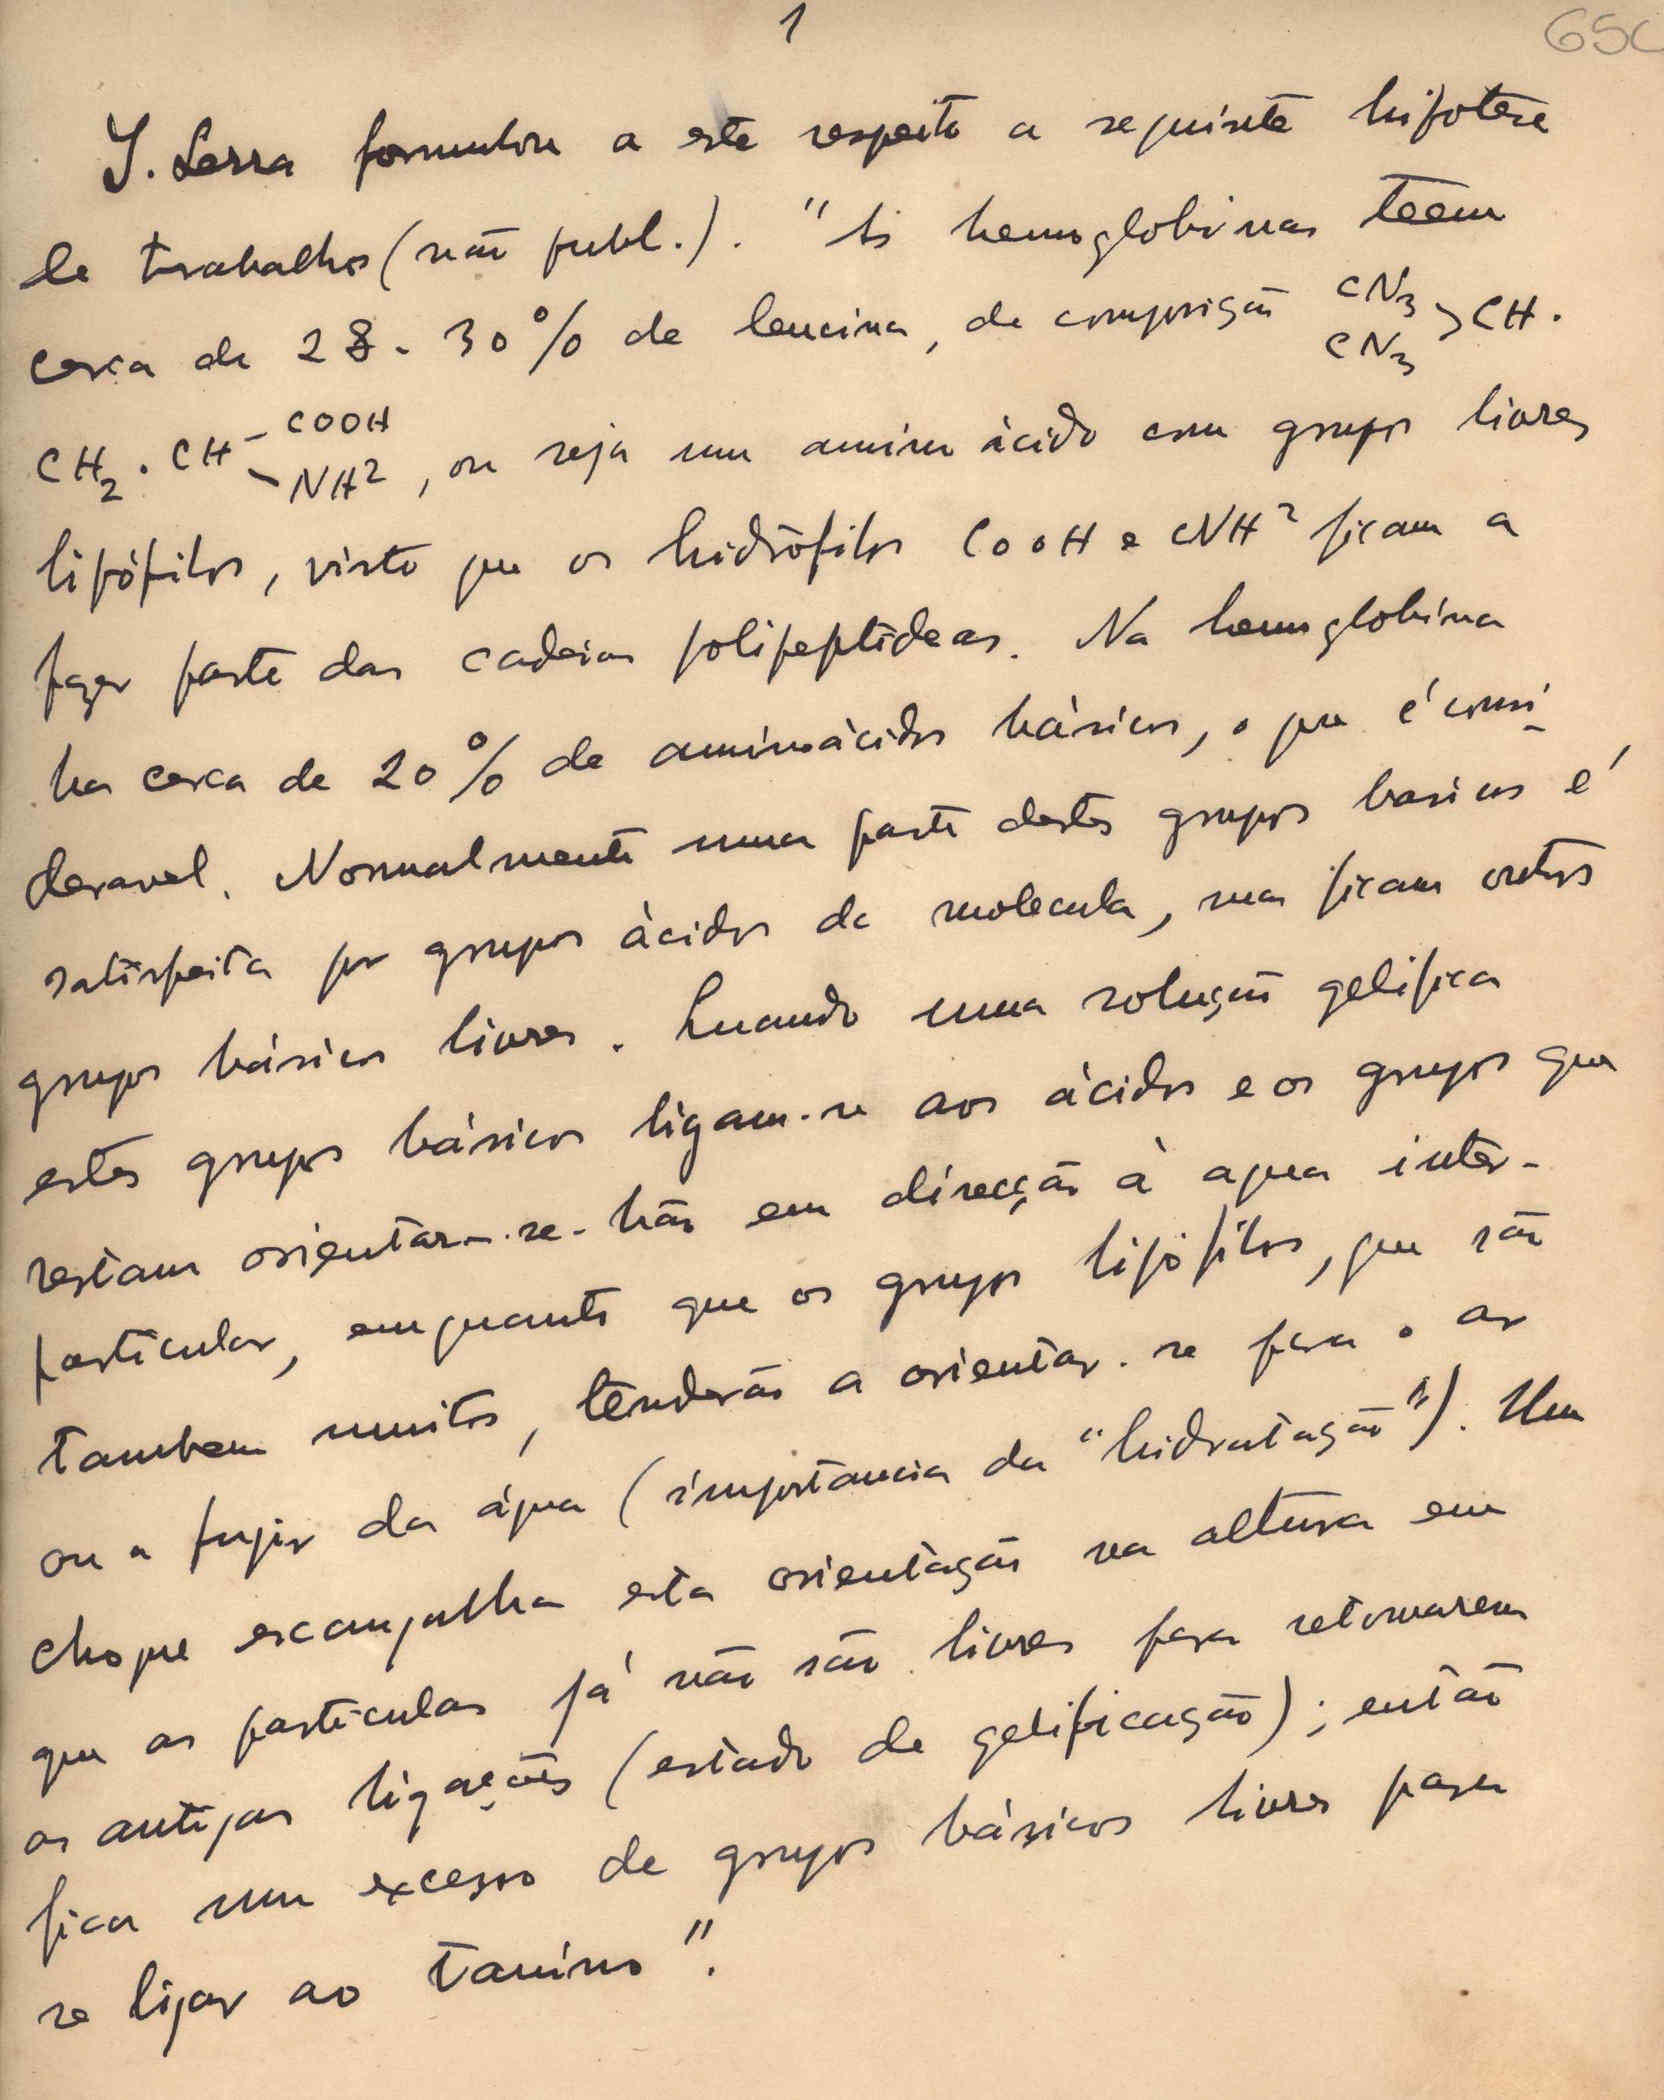 1
65C
J. Serra formulou a este respeito a seguinte hipotese
de trabalho (não publ.). "As hemoglobinas teem
cerca de 28-30% de leucina, de composição CN3 CN3 >CH.
CH2.CH - COOH - NH2, ou seja um amino ácido com grupos livres
lipófilos, visto que os hidrófilos COOH e CNH2 ficam a
fazer parte das cadeias polipeptideas. Na hemoglobina
ha cerca de 20% de aminoácidos básicos, o que é consi-
deravel. Normalmente uma parte destes grupos basicos é
satisfeita por grupos ácidos da molecula, mas ficam outros
grupos básicos livres. Quando uma solução gelifica
estes grupos básicos ligam-se aos ácidos e os grupos que
restam orientar-se-hão em direcção à agua inter-
particular, emquanto que os grupos lipófilos, que são
tambem muitos, tenderão a orientar-se para o ar
ou a fugir da água (importancia da "hidratação"). Um
choque escangalha esta orientação na altura em
que as particulas já não são livres para retomarem
as antigas ligações (estado de gelificação); então
fica um excesso de grupos básicos livres para
se ligar ao tanino".